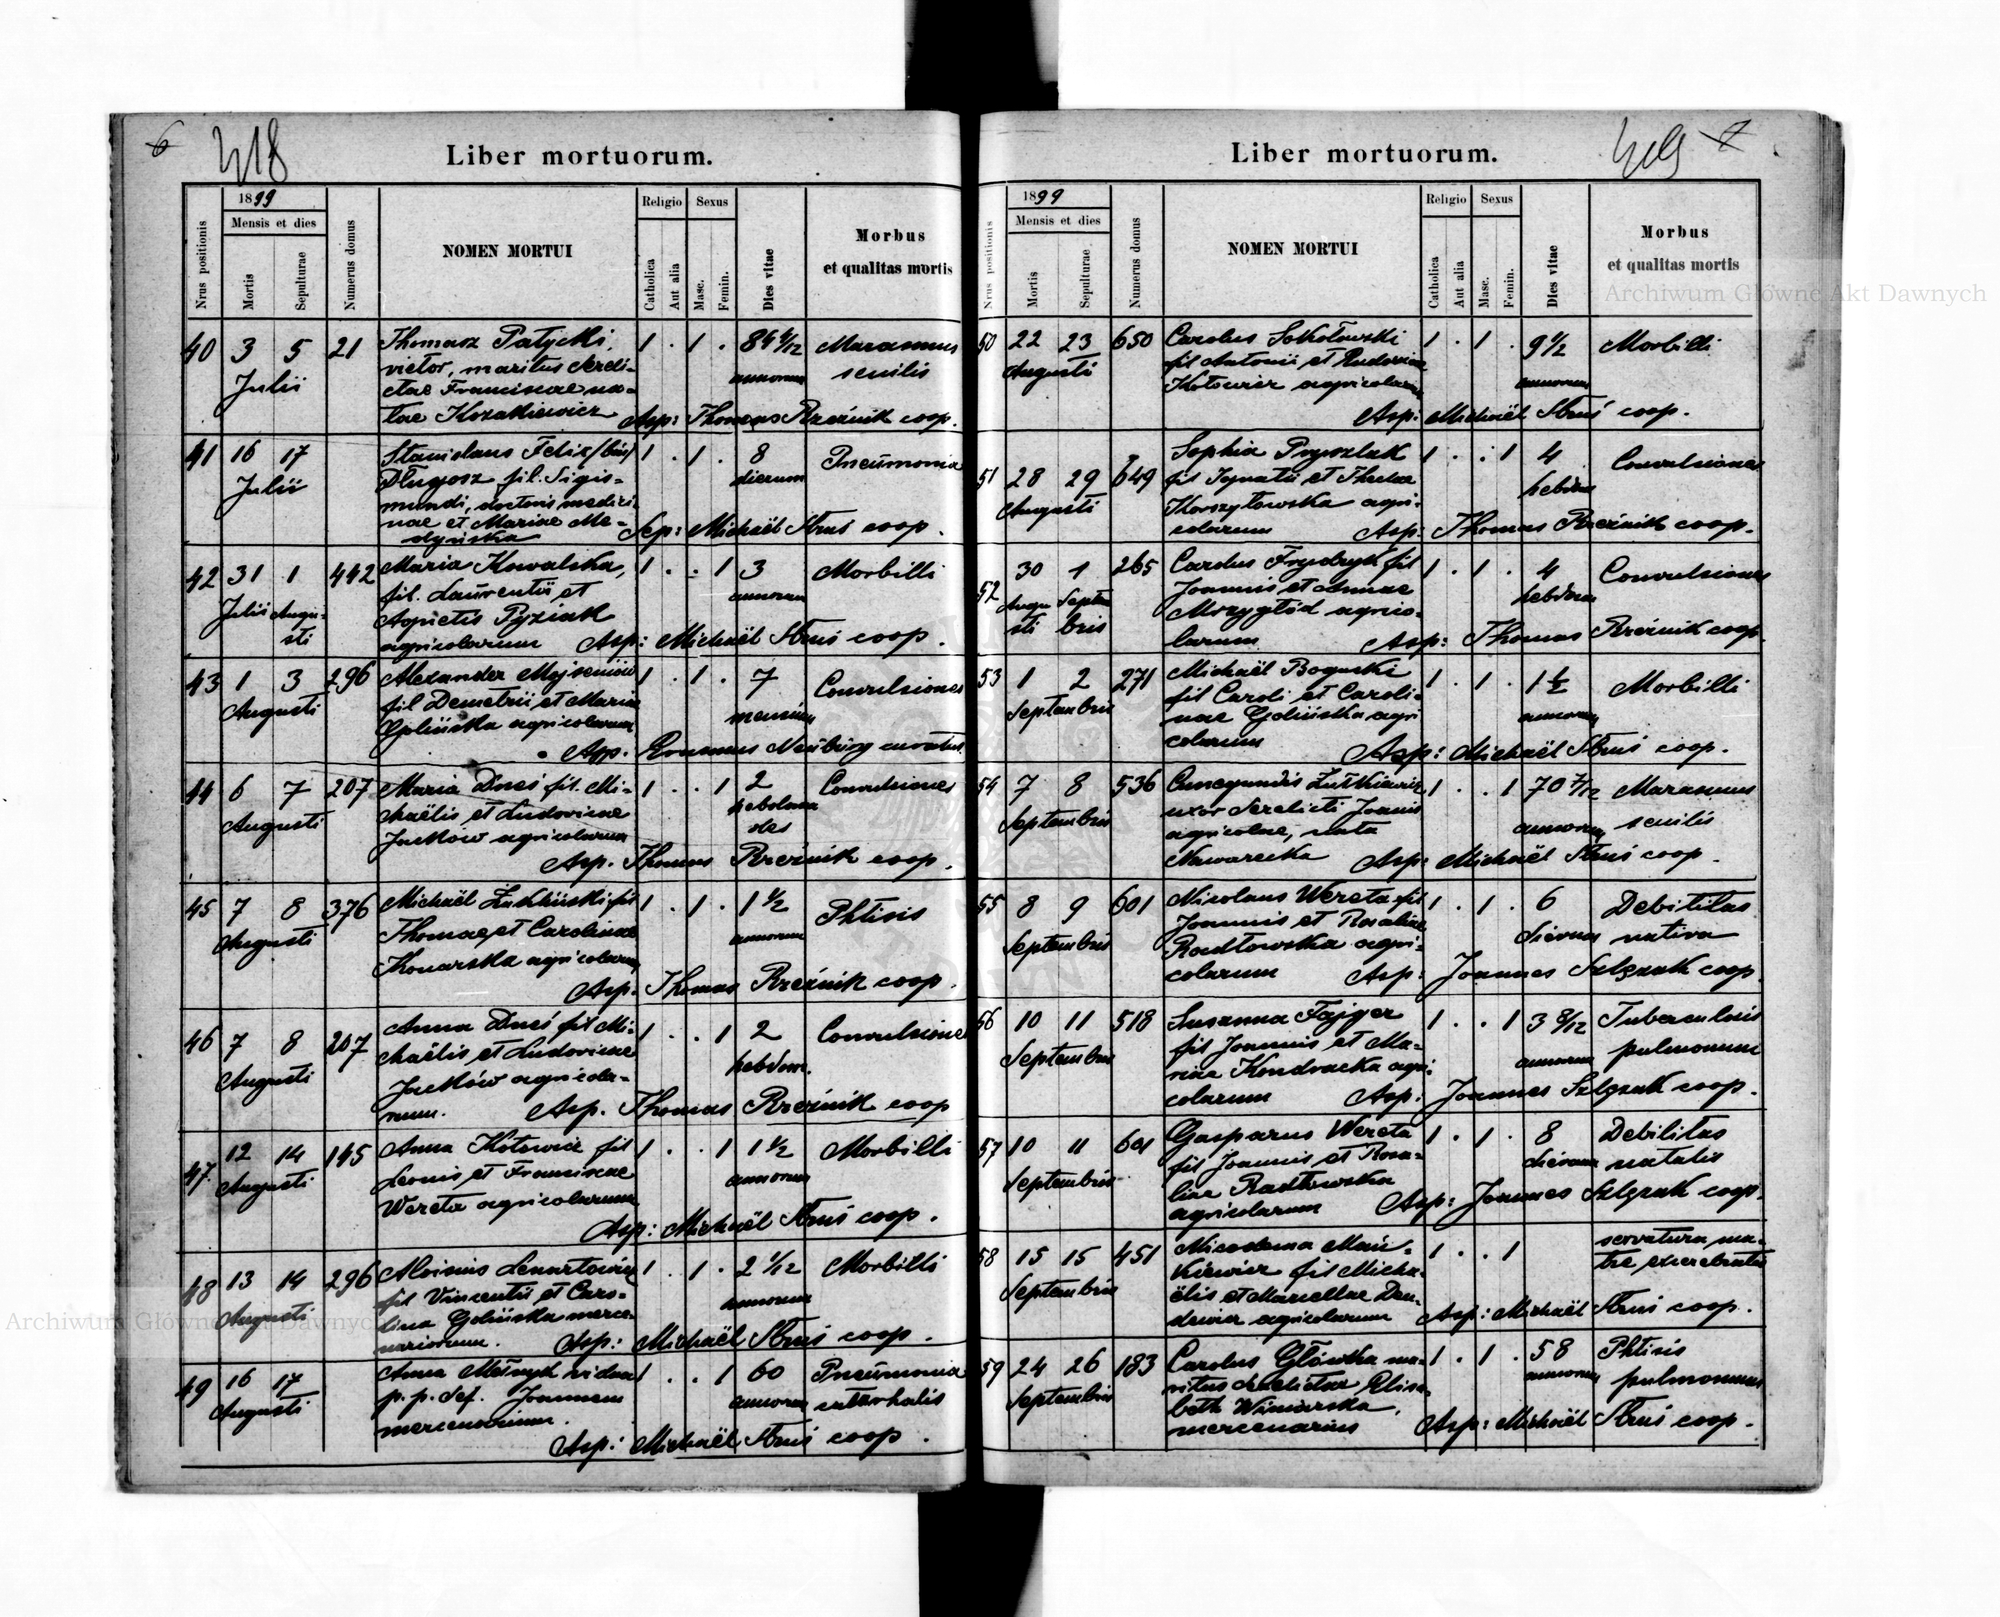 6
418
Liber mortuorum.
Nrus positionis
1899
Mensis et dies
Mortis
Sepulturae
Numerus domus
NOMEN MORTUI
Religio
Catholica
Aut alia
Sexus
Masc.
Femin.
Dies vitae
Morbus
et qualitas mortis
40 3 5 21 Thomasz Patycki, 1 . 1 . 84 4/12 Marasmus
Julii vietor, maritus dereli- annorum senilis
ctae Franciscae na-
tae Kozakiewicz Asp: Thomas Rzeźnik coop.
41 16 17 Stanislaus Felix (bin) 1 . 1 . 8 Pneumonia
Julii Długosz fil. Sigis- dierum
mundi, doctoris medici-
nae et Mariae Me-
dyńska Sep: Michaël Struś coop.
42 31 1 442 Maria Kowalska, 1 . . 1 3 Morbilli
Julii Augu- fil. Laurentii et annorum
sti Agnetis Pyziak
agricolarum Asp: Michaël Struś coop.
43 1 3 296 Alexander 1 . 1 . 7 Convulsiones
Augusti fil Demetrii et Maria mensium
Golińska agricolarum
Asp. Erasmus Neuburg curatus
44 6 7 207 Maria Duś fil. Mi- 1 . . 1 2 Convulsiones
Augusti chaëlis et Ludovicae hebdoma
Jacków agricolarum des
Asp. Thomas Rzeźnik coop.
45 7 8 376 Michaël fil 1 . 1 . 1 1/2 Phtisis
Augusti Thomae et Carolinae annorum
Konarska agricolarum
Asp. Thomas Rzeźnik coop.
46 7 8 207 Anna Duś fil Mi- 1 . . 1 2 Convulsione
Augusti chaëlis et Ludovicae hebdom.
Jacków agricola-
rum. Asp. Thomas Rzeźnik coop
47. 12 14 145 Anna Kotowicz fil 1 . . 1 1 1/2 Morbilli
Augusti Leonis et Franciscae annorum
Wereta agricolarum
Asp: Michaël Struś coop.
48 13 14 296 Aloisius Lenartowicz 1 . 1 . 2 1/12 Morbilli
Augusti fil Vincentii et Caro- annorum
lina Golińska merce-
nariorum. Asp: Michaël Struś coop.
49 16 17 Anna Melnyk vidua 1 . . 1 60 Pneumonia
Augusti p. p. def. Joannem annorum catterhalis
mercenarium.
Asp: Michaël Struś coop.
7
419
Liber mortuorum.
Nrus positionis
1899
Mensis et dies
Mortis
Sepulturae
Numerus domus
NOMEN MORTUI
Religio
Catholica
Aut alia
Sexus
Masc.
Femin.
Dies vitae
Morbus
et qualitas mortis
50 22 23 650 Carolus Sokołowski 1 . 1 . 9 1/2 Morbilli
Augusti fil Antonii et Ludovica annorum
Kotowicz agricolarum
Asp: Michaël Struś coop.
51 28 29 649 Sophia Pryszlak 1 . . 1 4 Convulsiones
Augusti fil Ignatii et Theclae hebdom
Korszyłowska agri-
colarum Asp: Thomas Rzeźnik coop.
52 30 1 265 Carolus Frydryk fil 1 . 1 . 4 Convulsiones
Augu Septem Joannis et Annae hebdom
sti bris Mozygłód agrico-
larum Asp: Thomas Rzeźnik coop.
53 1 2 271 Michaël Boguski 1 . 1 . 1 1/2 Morbilli
Septembris fil Caroli et Caroli- annorum
nae Golińska agri
colarum Asp: Michaël Struś coop.
54 7 8 536 Cunegundis Lutkiewicz 1 . . 1 70 7/12 Marasmus
Septembris uxor derelicti Joannis annorum senilis
agricolae, nata
Nawarecka Asp: Michaël Struś coop.
55 8 9 601 Nicolaus Wereta fil 1 . 1 . 6 Debilitas
Septembris Joannis et Rosaliae dierum nativa
Radłowska agri-
colarum Asp: Joannes Szlęzak coop.
56 10 11 518 Susanna Fajger 1 . . 1 3 8/12 Tuberculosis
Septembris fil Joannis et Ma- annorum pulmonum
riae Kondracka agri-
colarum Asp: Joannes Szlęzak coop.
57 10 11 601 Gasparus Wereta 1 . 1 . 8 Debilitas
Septembris fil Joannis et Rosa- dierum natalis
liae Radłowska
agricolarum Asp: Joannes Szlęzak coop.
58 15 15 451 Nicodema Mań- 1 . . 1 servatura ma-
Septembris kiewicz fil Micha- tre
ëlis et Marcellae
agricolarum Asp: Michaël Struś coop.
59 24 26 183 Carolus Główka ma- 1 . 1 . 58 Phtisis
Septembris ritus derelictae Elisa- annorum pulmonum
beth Winiarska,
mercenarius Asp: Michaël Struś coop.
Archiwum Główne Akt Dawnych
Archiwum Główne Akt Dawnych